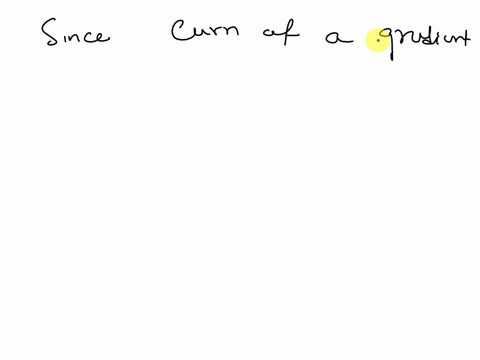 Since Curn of a gradient